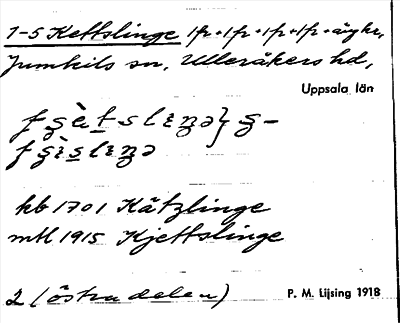 1-5 Kettslinge 1fr+1fr+1fr+1fr+äghr,
Jumkils sn, Ulleråkers hd,
Uppsala län
kb 1701 Kätzlinge
mtl 1915 Kjettslinge
2 (östra delen)
P. M. Lijsing 1918